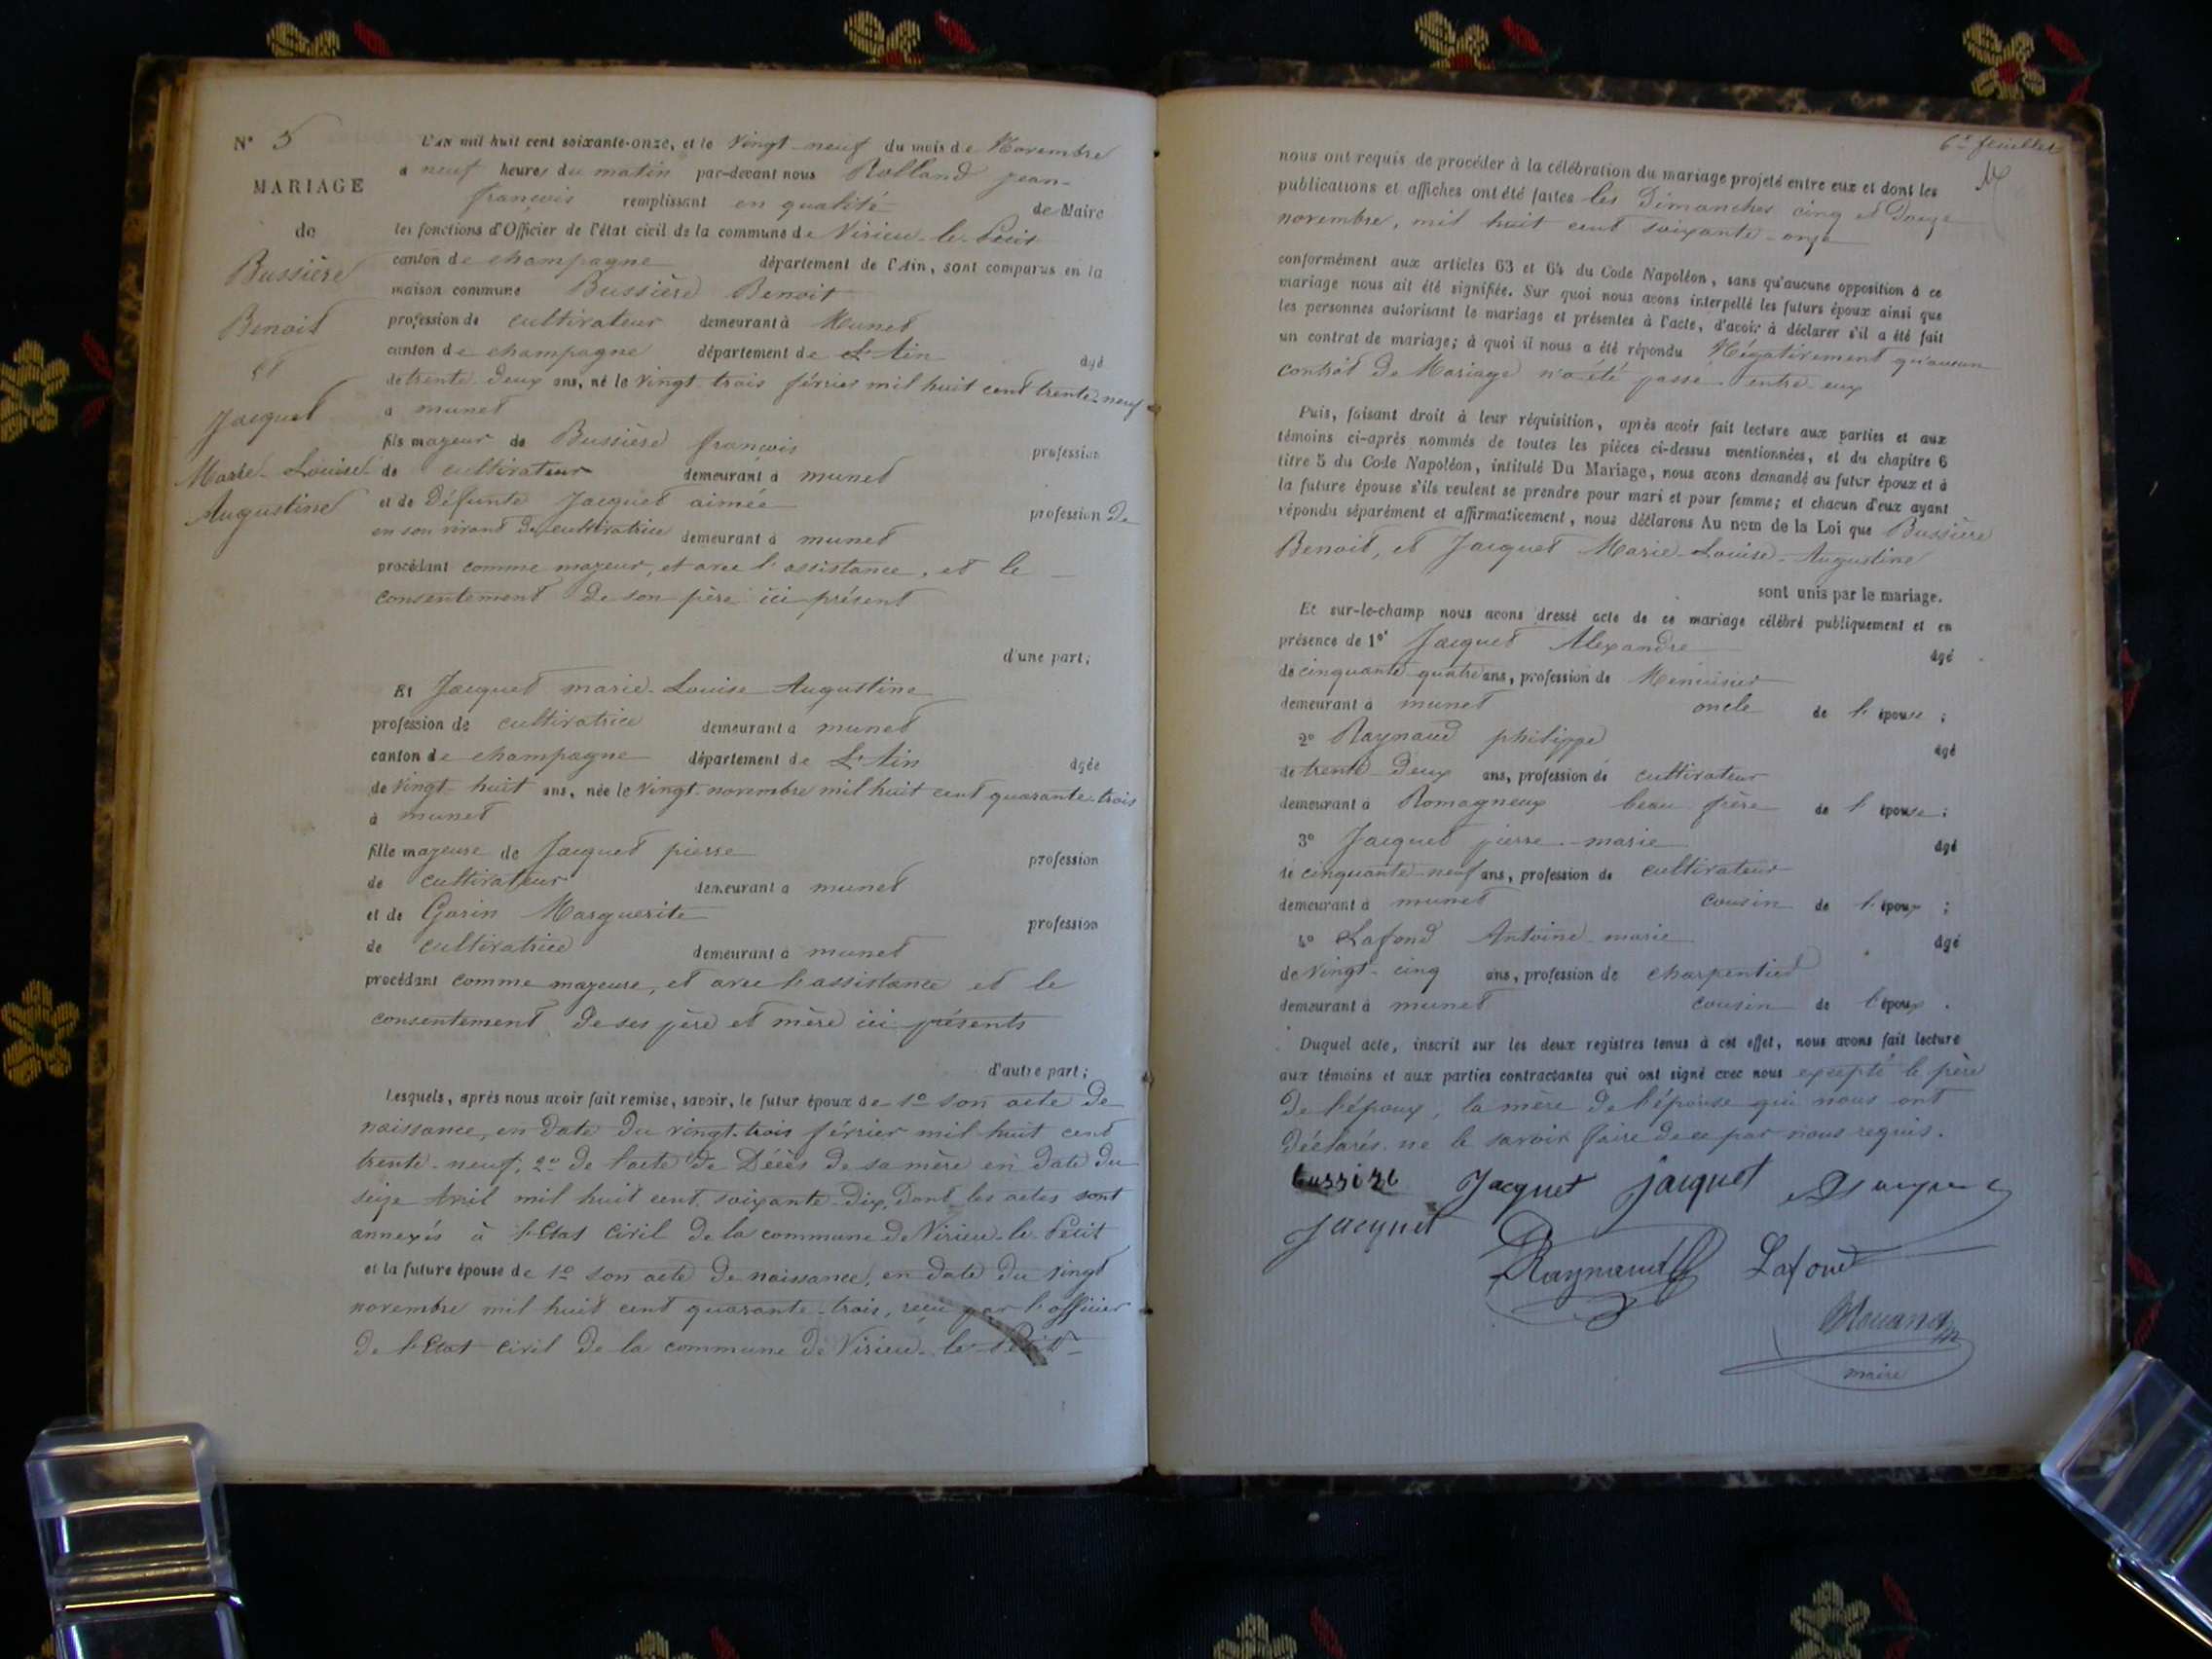 N° 5
MARIAGE
de
Bussière
Benoit
et
Jacquet
Marie-Louise-
Augustine
L'AN mil huit cent soixante-onze, et le vingt-neuf du mois de Novembre
a neuf heures du matin par-devant nous Rolland jean-
françois remplissant en qualité de Maire
les fonctions d'Officier de l'état civil de la commune de Virieu-le-Petit
canton de champagne département de l'Ain, sont comparus en la
maison commune Bussière Benoit
profession de cultivateur demeurant à Munet
canton de champagne département de L'Ain âgé
de trente-deux ans, né le vingt-trois février mil huit cent trente-neuf
à munet
fils majeur de Bussière françois profession
de cultivateur demeurant à munet
et de Défunte Jacquet aimée profession de
en son vivant de cultivatrice demeurant à munet
procédant comme majeur, et avec l'assistance, et le
consentement de son père ici présent
d'une part;
Et Jacquet marie-Louise-Augustine
profession de cultivatrice demeurant à munet
canton de champagne département de L'Ain âgée
de vingt-huit ans, née le vingt novembre mil huit cent quarante-trois
à munet
fille majeure de Jacquet pierre profession
de cultivateur demeurant à munet
et de Garin Marguerite profession
de cultivatrice demeurant à munet
procédant comme majeure, et avec l'assistance et le
consentement de ses père et mère ici présents
d'autre part;
Lesquels, après nous avoir fait remise, savoir, le futur époux de 1° son acte de
naissance, en date du vingt-trois février mil huit cent
trente-neuf; 2° de l'acte de Décès de sa mère en date du
seize Avril mil huit cent soixante-dix, dont les actes sont
annexés à l'Etat Civil de la commune de Virieu-le-Petit
et la future épouse de 1° son acte de naissance, en date du vingt
novembre mil huit cent quarante-trois, reçu par l'officier
de l'Etat civil de la commune de Virieu-le-Petit
6e feuillet
nous ont requis de procéder à la célébration du mariage projeté entre eux et dont les
publications et affiches ont été faites les Dimanches cinq et Douze
novembre, mil huit cent soixante-onze
conformément aux articles 63 et 64 du Code Napoléon, sans qu'aucune opposition à ce
mariage nous ait été signifiée. Sur quoi nous avons interpellé les futurs époux ainsi que
les personnes autorisant le mariage et présentes à l'acte, d'avoir à déclarer s'il a été fait
un contrat de mariage; à quoi il nous a été répondu Négativement qu'aucun
contrat de Mariage n'a été passé entre eux
Puis, faisant droit à leur réquisition, après avoir fait lecture aux parties et aux
témoins ci-après nommés de toutes les pièces ci-dessus mentionnées, et du chapitre 6
titre 5 du Code Napoléon, intitulé Du Mariage, nous avons demandé au futur époux et à
la future épouse s'ils veulent se prendre pour mari et pour femme; et chacun d'eux ayant
répondu séparément et affirmativement, nous déclarons Au nom de la Loi que Bussière
Benoit, et Jacquet Marie-Louise-Augustine
sont unis par le mariage.
Et sur-le-champ nous avons dressé acte de ce mariage célébré publiquement et en
présence de 1° Jacquet Alexandre âgé
de cinquante-quatre ans, profession de Menuisier
demeurant à munet oncle de l'épouse;
2° Raynaud philippe âgé
de trente-deux ans, profession de cultivateur
demeurant à Romagneux beau frère de l'épouse;
3° Jacquet pierre-marie âgé
de cinquante-neuf ans, profession de cultivateur
demeurant à munet cousin de l'époux;
4° Lafond Antoine-marie âgé
de vingt-cinq ans, profession de charpentier
demeurant à munet cousin de l'époux.
Duquel acte, inscrit sur les deux registres tenus à cet effet, nous avons fait lecture
aux témoins et aux parties contractantes qui ont signé avec nous excepté le père
de l'époux, la mère de l'épouse qui nous ont
déclarés ne le savoir faire de ce par nous requis.
bussire Jacquet jacquet
Jacquet
Raynaud Lafond
maire